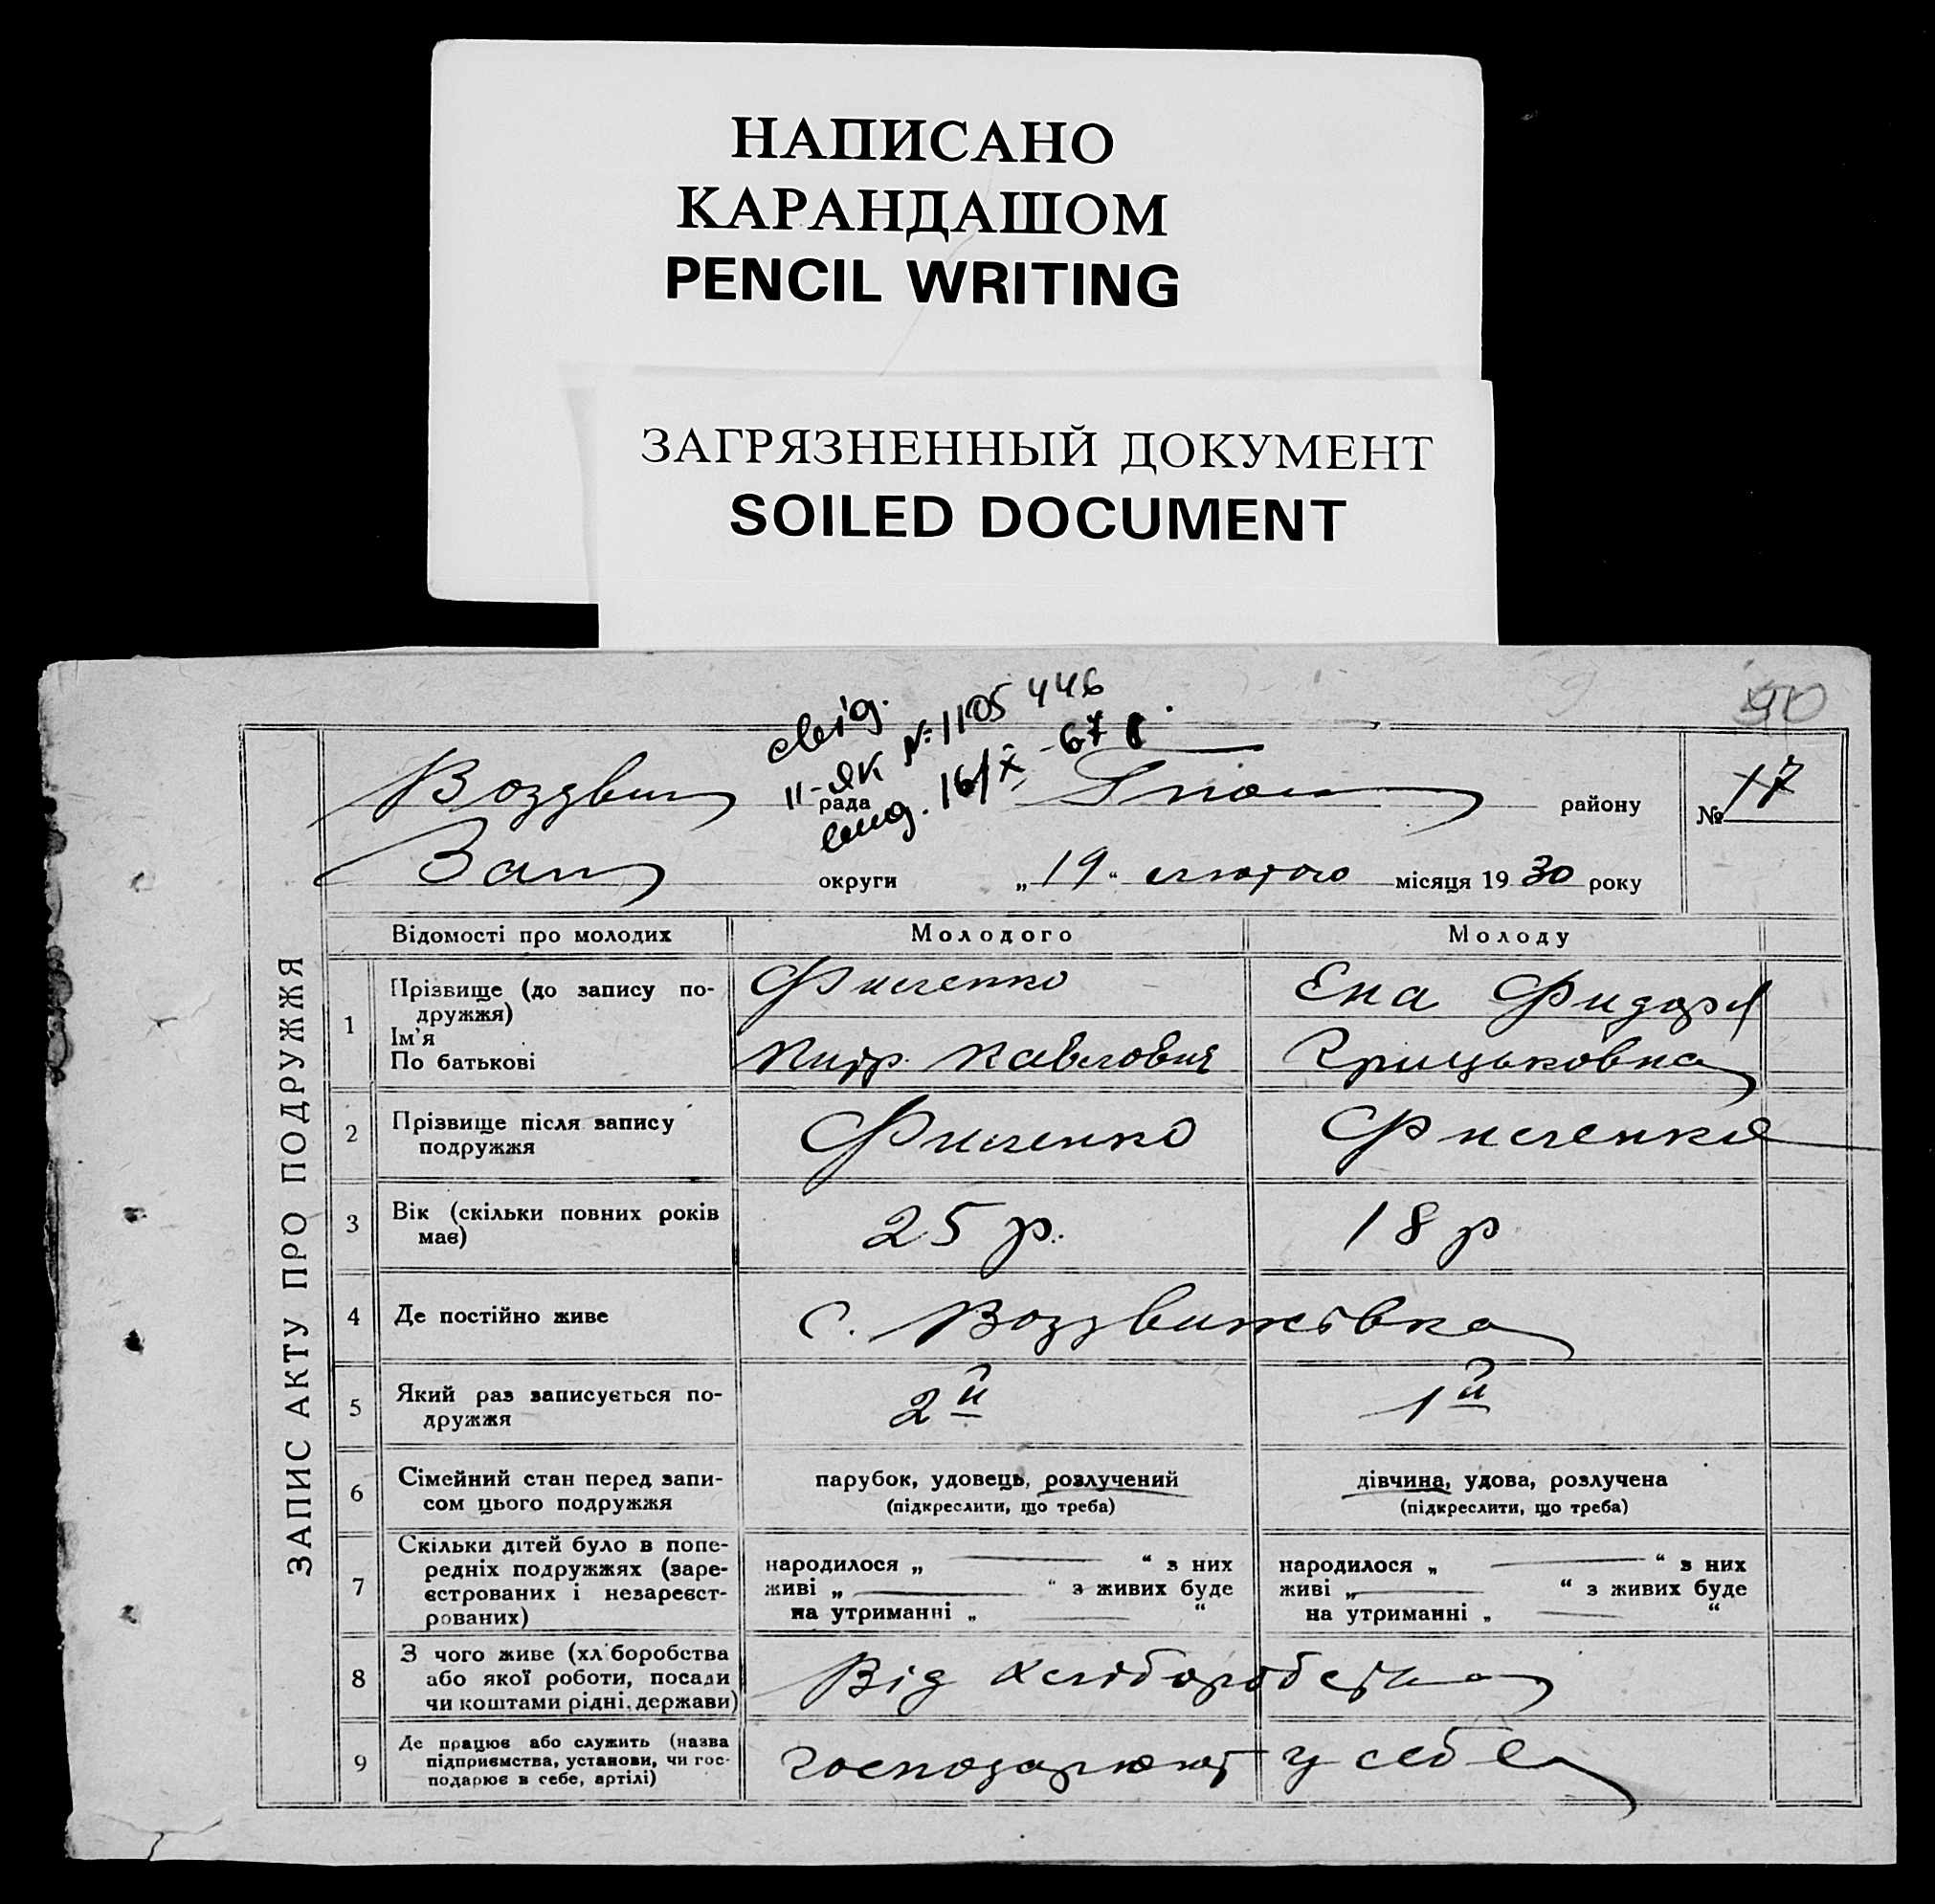 НАПИСАНО
КАРАНДАШОМ
PENCIL WRITING
ЗАГРЯЗНЕННЫЙ ДОКУМЕНТ
SOILED DOCUMENT
90
свід.
II-ЯК № 1105446
вид. 16/X-67 р.
Воздвиж рада району
№ 17
Зап округи „19“ лютого місяця 1930 року
ЗАПИС АКТУ ПРО ПОДРУЖЖЯ
Відомості про молодих Молодого Молоду
1 Прізвище (до запису подружжя)
Ім'я
По батькові
Павлович
Грицьковна
2 Прізвище після запису
подружжя
3 Вік (скільки повних років
має)
25 р. 18 р
4 Де постійно живе с. Воздвижівка
5 Який раз записується по-
дружжя
2й 1й
6 Сімейний стан перед запи-
сом цього подружжя
парубок, удовець, розлучений дівчина, удова, розлучена
(підкреслити, що треба) (підкреслити, що треба)
7 Скільки дітей було в попе-
редніх подружжях (заре-
єстрованих і незареєст-
рованих)
народилося „ — “ з них народилося „ — “ з них
живі „ — “ з живих буде живі „ — “ з живих буде
на утриманні „ — “ на утриманні „ — “
8 З чого живе (хліборобства
або якої роботи, посади
чи коштами рідні, держави)
Від хліборобства
9 Де працює або служить (назва
підприємства, установи, чи гос-
подарює в себе, артілі)
господарюют у себе